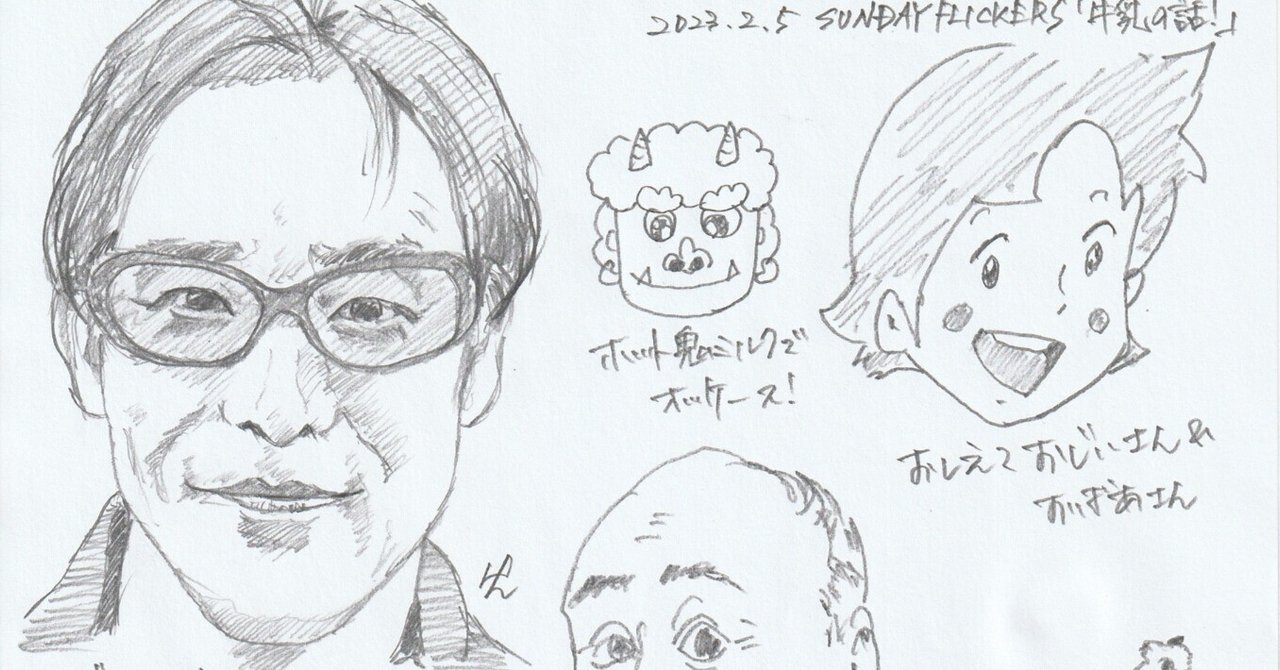 2023.2.5 SUNDAY FLICKERS「牛乳の話!」
ホット鬼ミルクで
オッケース!
おしえて おじいさん&
おばあさん
けん